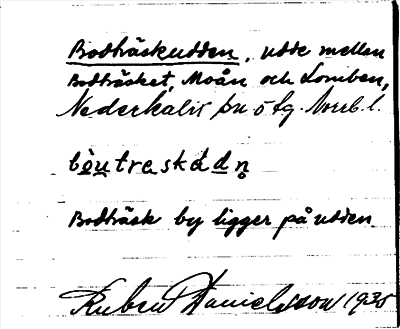 Bodträskudden, udde mellan
Bodträsket, Moån och Lomben,
Nederkalix sn ö tg. Norrb. l.
bo̱u̱tre̱skú̱ḏn̥
Bodträsk by ligger på udden.
Ruben Danielsson 1935